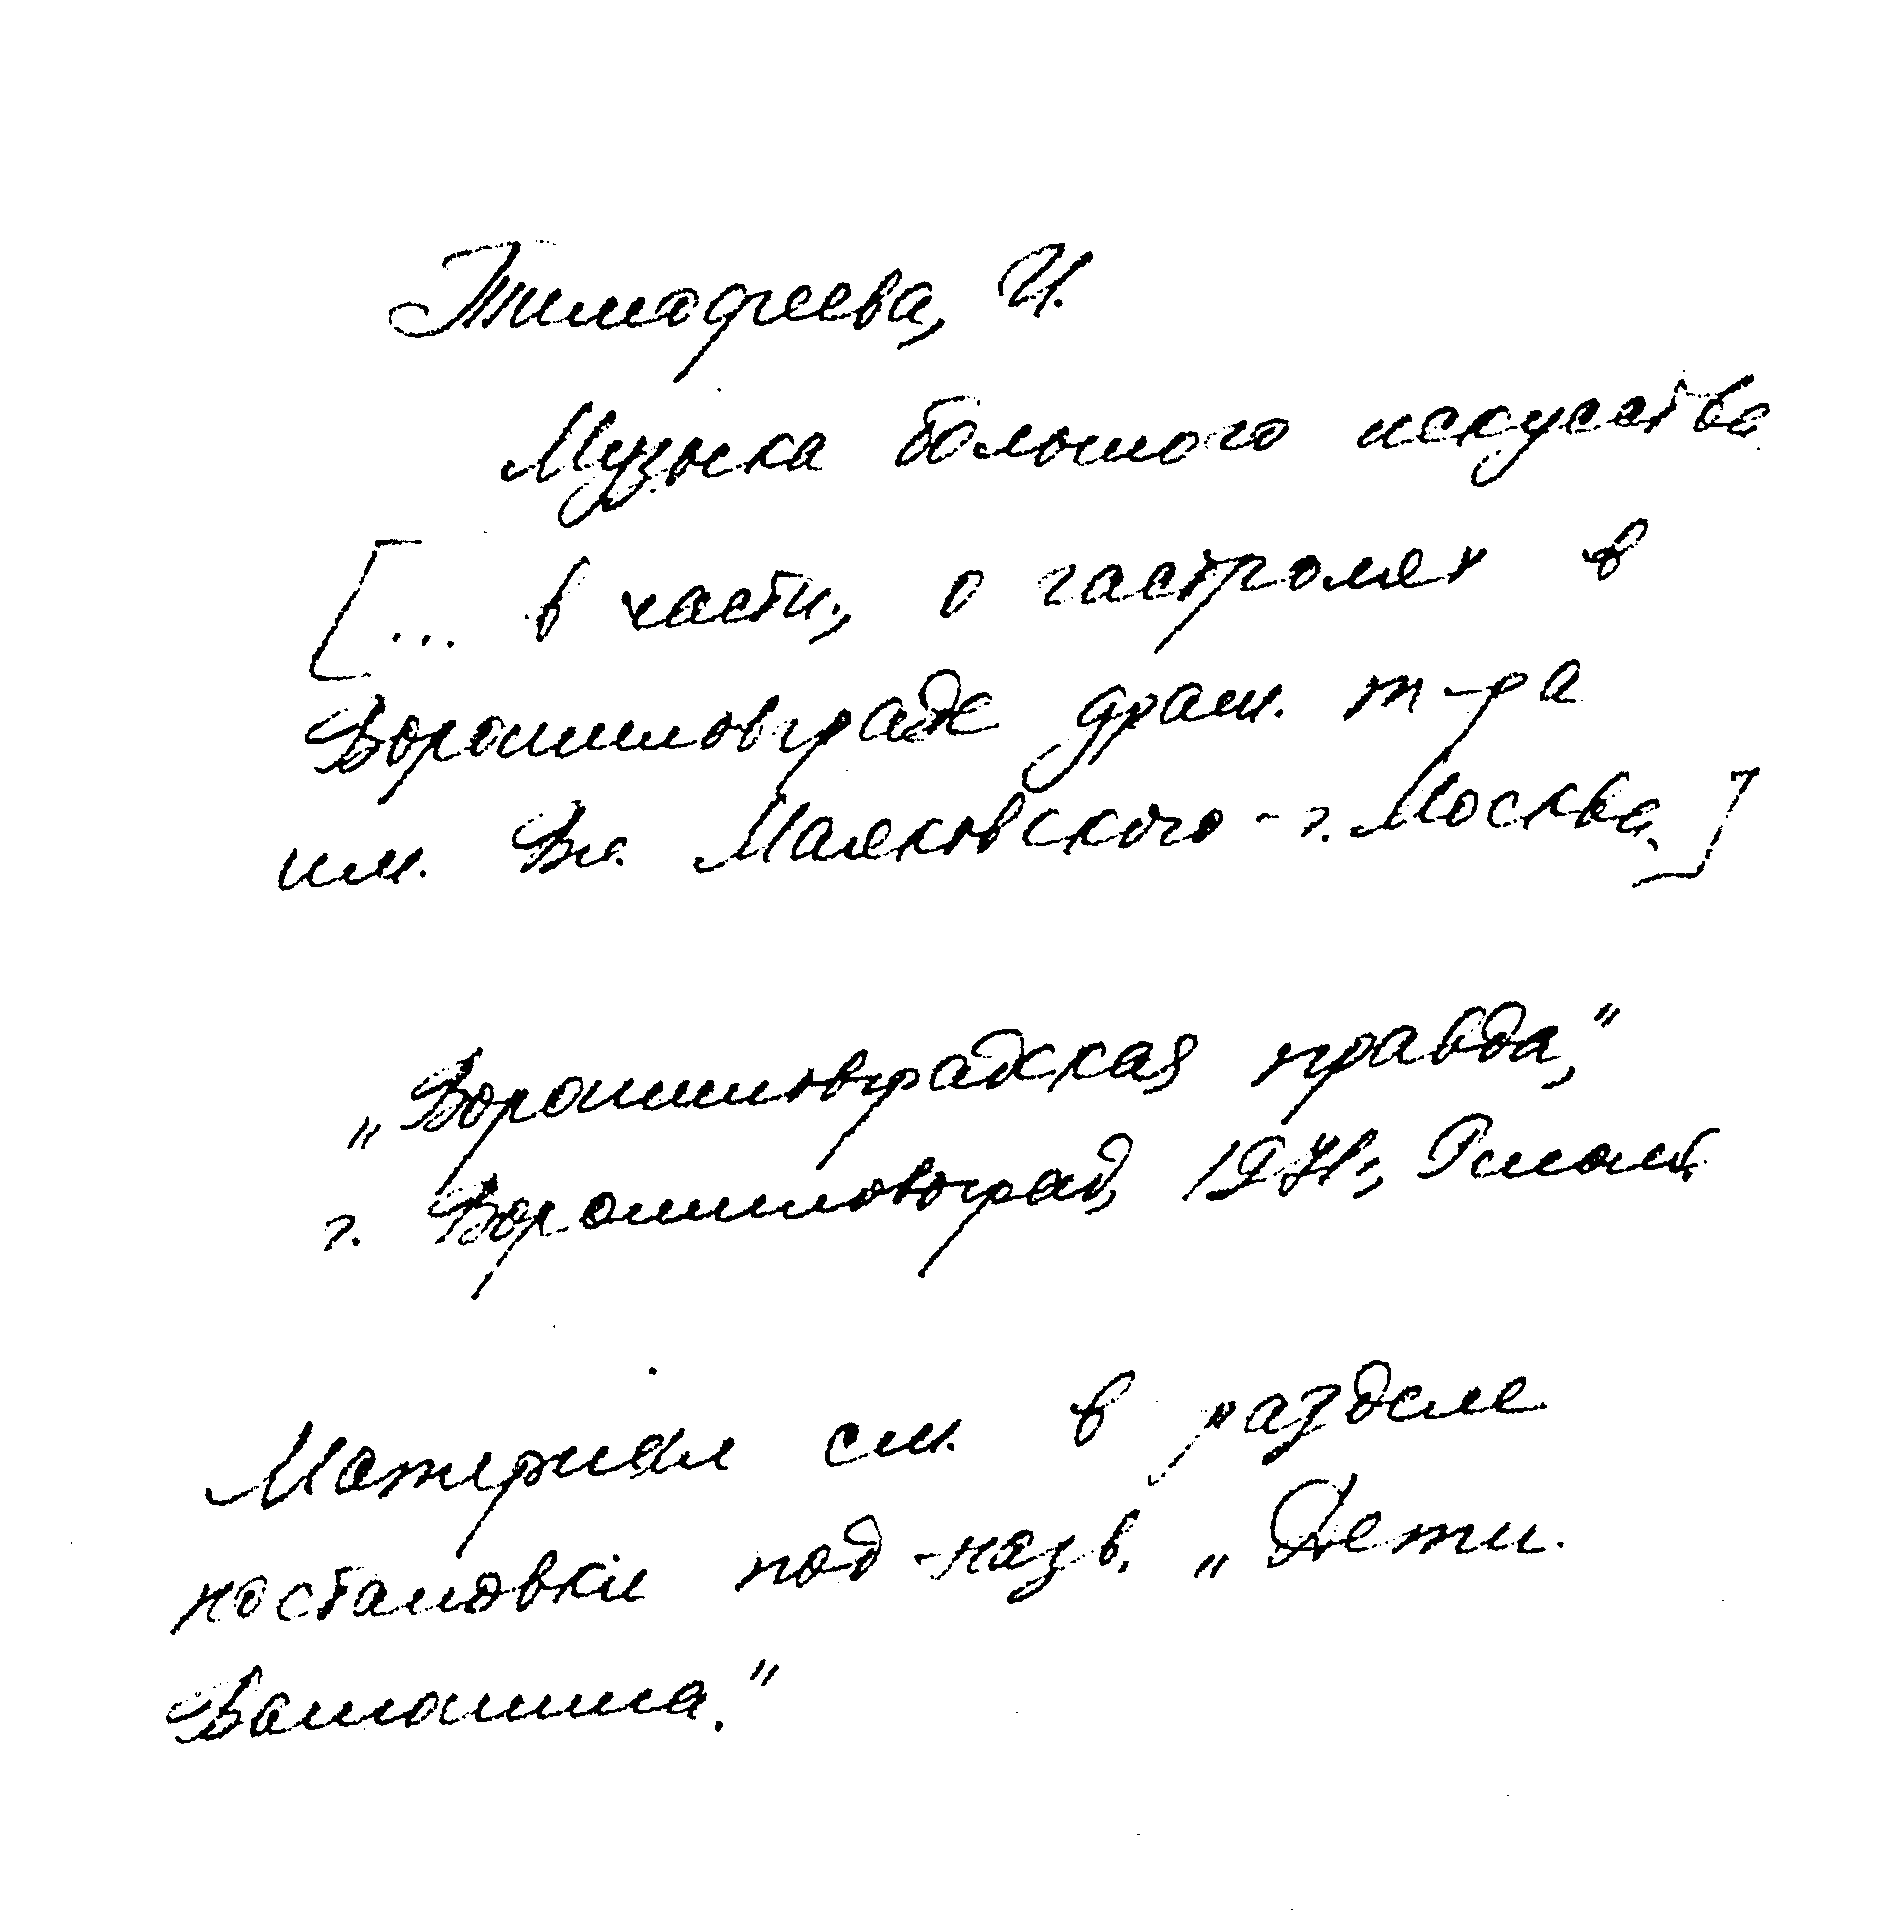 Тимофеева, И.
Музыка большого искусства
[... в части, о гастролях в
Ворошиловграде драм. т-ра
им. Вл. Маяковского - г. Москва.]
„Ворошиловградская правда,"
г. Ворошиловград,
Материал см. в разделе
постановки под назв. „Дети
Ванюшина."